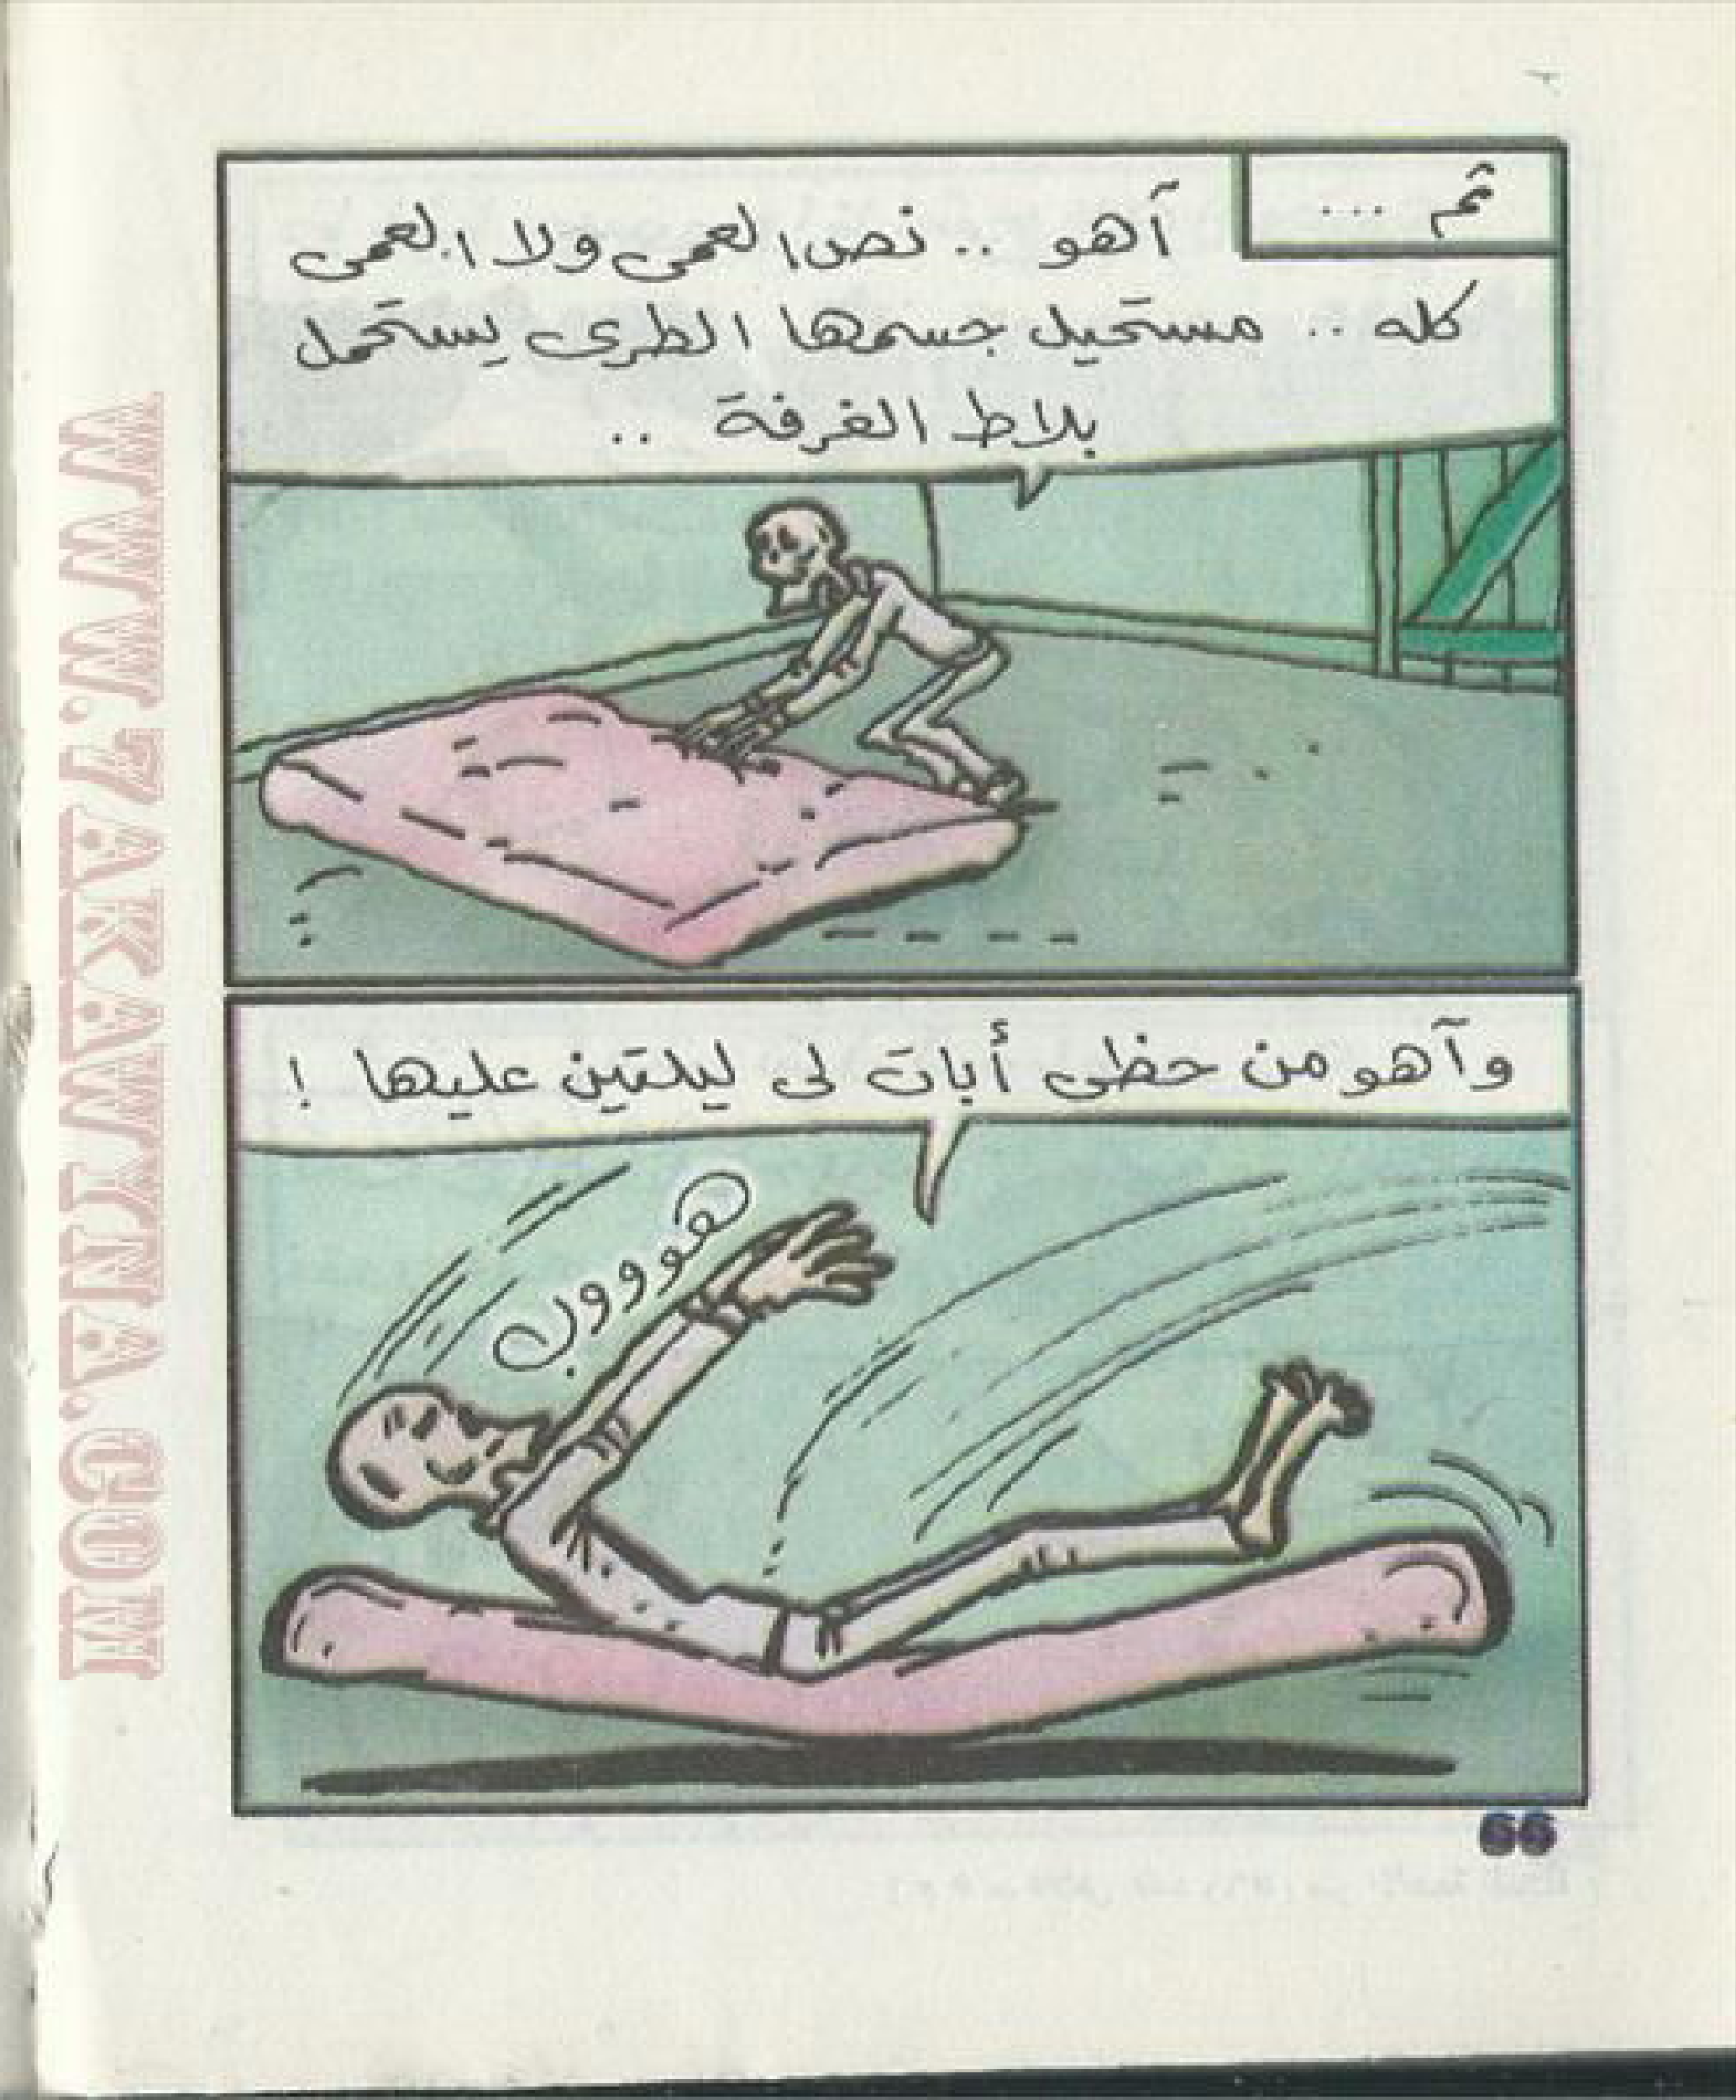 ثم ...
آهو .. نص العمى ولا العمى
كله .. مستحيل جسمها الطرى يستحمل
بلاط الغرفة ..
وآهو من حظى أبات لى ليلتين عليها !
هوووب
66
WWW.7AKAWYNA.COM